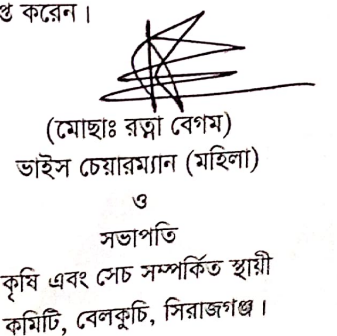 করেন।
(মোছাঃ রত্না বেগম)
ভাইস চেয়ারম্যান (মহিলা)
ও
সভাপতি
কৃষি এবং সেচ সম্পর্কিত স্থায়ী
কমিটি, বেলকুচি, সিরাজগঞ্জ।